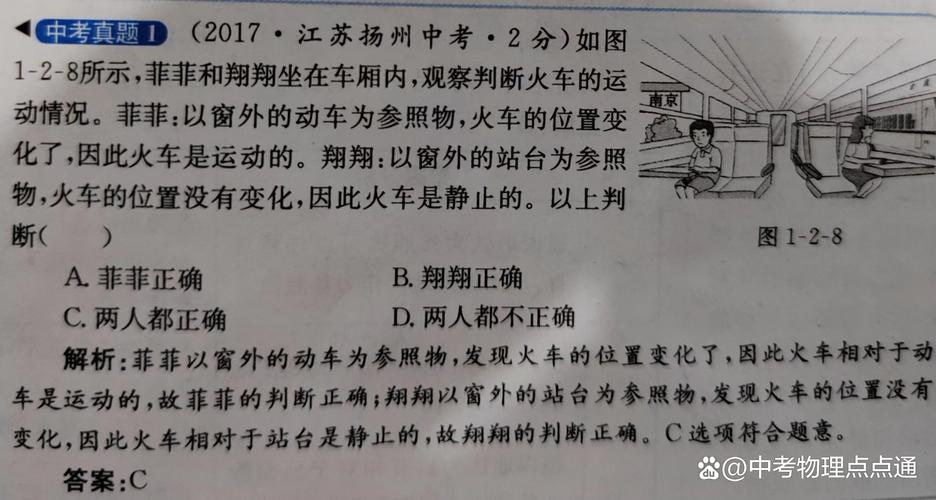 中考真题1 (2017·江苏扬州中考·2分)如图
1-2-8所示,菲菲和翔翔坐在车厢内,观察判断火车的运
动情况。菲菲:以窗外的动车为参照物,火车的位置变
化了,因此火车是运动的。翔翔:以窗外的站台为参照
物,火车的位置没有变化,因此火车是静止的。以上判
断(  )
南京
图1-2-8
A. 菲菲正确 B. 翔翔正确
C. 两人都正确 D. 两人都不正确
解析:菲菲以窗外的动车为参照物,发现火车的位置变化了,因此火车相对于动
车是运动的,故菲菲的判断正确;翔翔以窗外的站台为参照物,发现火车的位置没有
变化,因此火车相对于站台是静止的,故翔翔的判断正确。C选项符合题意。
答案:C
@中考物理点点通